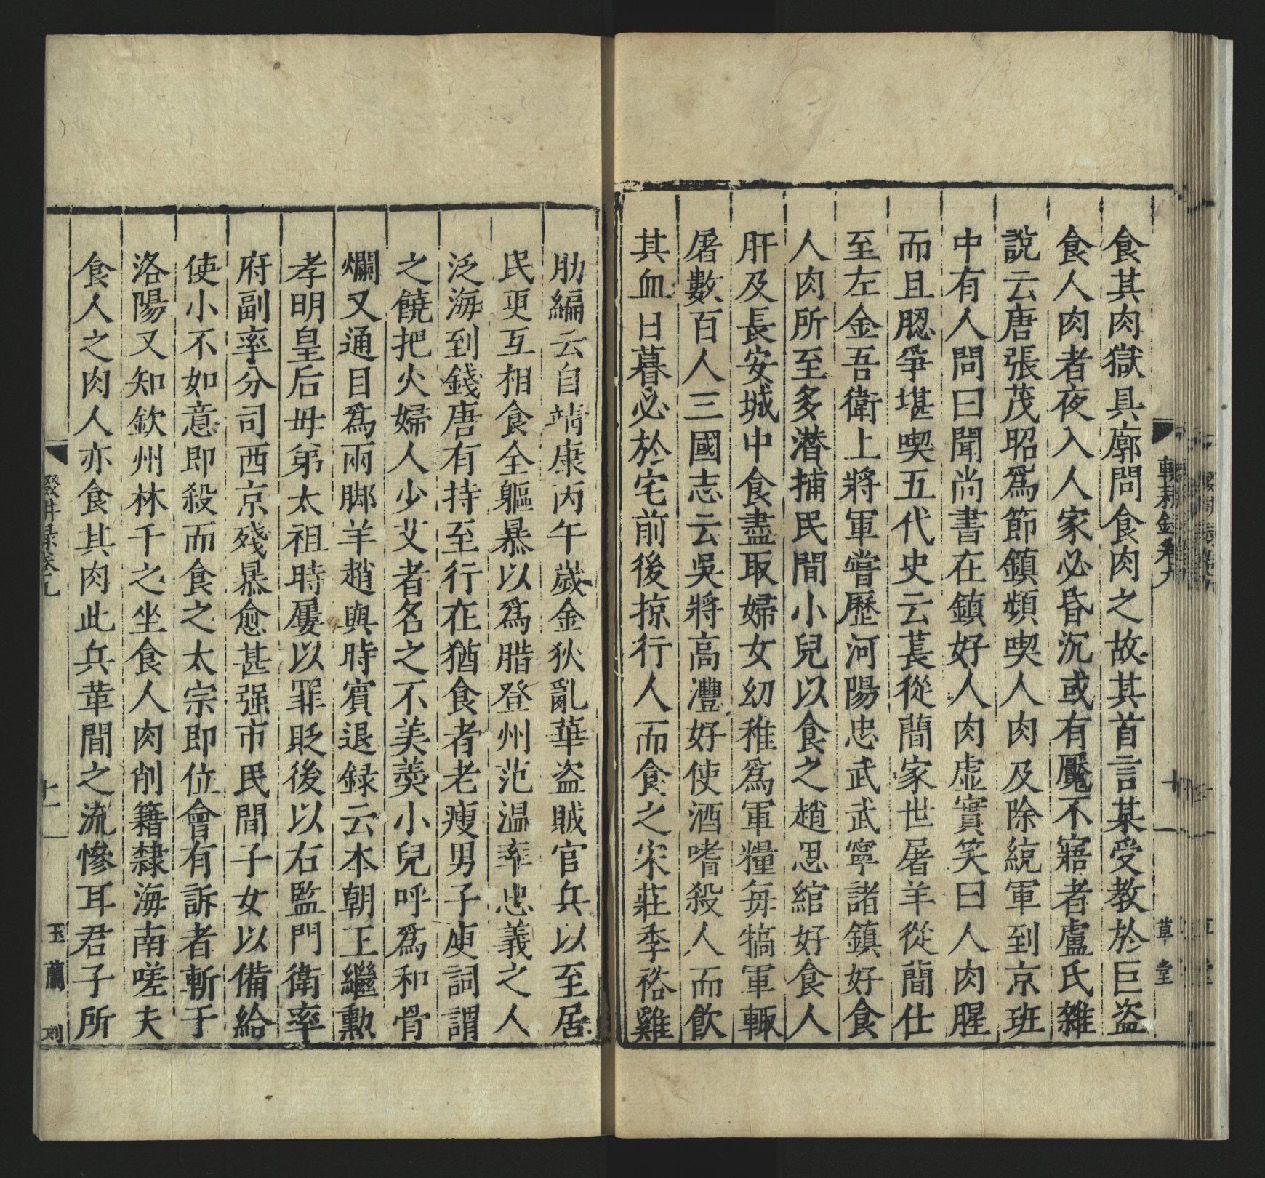 食其肉獄具廓問食肉之故其首言某受教於巨盜
食人肉者夜入人家必昏沉或有魘不寤者盧氏雜
說云唐張茂昭爲節鎮頻喫人肉及除統軍到京班
中有人問曰聞尚書在鎮好人肉虛實笑曰人肉腥
而且腮爭堪喫五代史云萇從簡家世屠羊從簡仕
至左金吾衛上將軍嘗歷河陽忠武武寧諸鎮好食
人肉所至多潜捕民間小兒以食之趙思綰好食人
肝及長安城中食盡取婦女幼稚爲軍糧毎犒軍輙
屠數百人三國志云吳將高灃好使酒嗜殺人而飲
其血日暮必於宅前後掠行人而食之宋莊季裕雞
肋編云自靖康丙午歲金狄亂華盗賊官兵以至居
民更互相食全軀暴以爲腊登州范温率忠義之人
泛海到錢唐有持至行在猶食者老瘦男子庾詞謂
之饒把火婦人少艾者名之不羙羮小兒呼爲和骨
爛又通目爲兩脚羊趙與時賓退録云本朝王繼勳
孝明皇后母弟太祖時屢以罪貶後以右監門衛率
府副率分司西京殘暴愈甚强市民間子女以備給
使小不如意即殺而食之太宗即位會有訴者斬于
洛陽又知欽州林千之坐食人肉削籍隸海南嗟夫
食人之肉人亦食其肉此兵革間之流慘耳君子所
輟耕錄卷九
十
草堂
輟耕錄卷九
十一
玉蘭